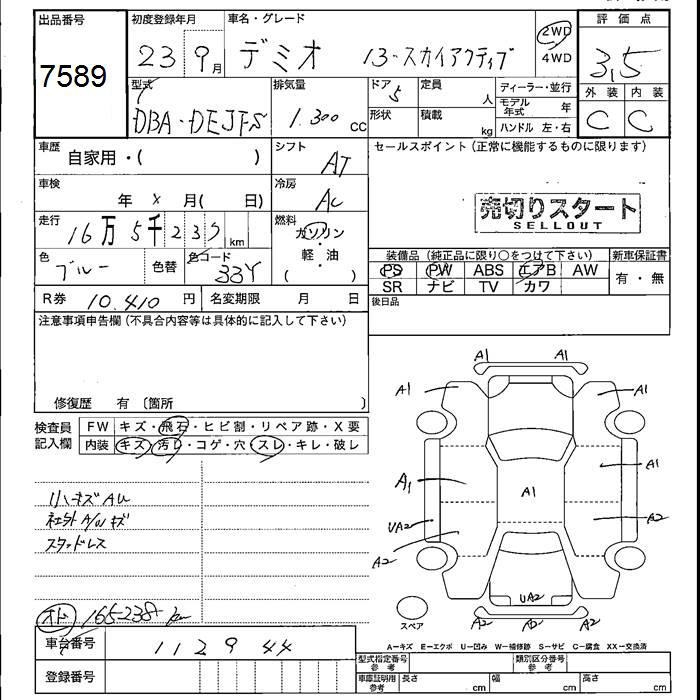 出品番号
7589
初度登録年月
23 9月
車名・グレード
デミオ 13-スカイアクティブ
2WD
4WD
評価点
3.5
外装 内装
C C
型式
DBA・DEJFS
排気量
1.300 cc
ドア 5
形状
定員 人
積載 kg
ディーラー・並行
モデル年式 年
ハンドル 左・右
車歴 自家用・( )
シフト AT
セールスポイント(正常に機能するものに限ります)
車検 年 × 月( 日)
冷房 AC
売切りスタート
SELLOUT
走行 16万5千237km
燃料
ガソリン
軽・油
( )
色 ブルー
色替
色コード 33Y
装備品(純正品に限り○をつけて下さい)
PS PW ABS エアB AW
SR ナビ TV カワ
新車保証書
有・無
後日品
R券 10.410 円
名変期限 月 日
注意事項申告欄(不具合内容等は具体的に記入して下さい)
修復歴 有 〔箇所 〕
検査員記入欄
FW キズ・飛石・ヒビ割・リペア跡・X要
内装 キズ・汚レ・コゲ・穴・スレ・キレ・破レ
リハキズAU
社外A/Wキズ
スタッドレス
オド 165238 km
A1 A1
A1 A1
A1 A1 A1
UA2 A2
A2
UA2
A2 A2 A2
スペア
A=キズ E=エクボ U=凹み W=補修跡 S=サビ C=腐食 XX=交換済
車台番号 112944
登録番号
型式指定番号 参考
類別区分番号 参考
車庫証明用 参考
長さ cm
幅 cm
高さ cm